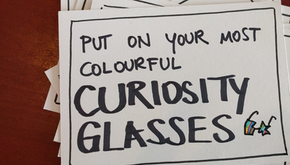 PUT ON YOUR MOST
COLOURFUL
CURIOSITY
GLASSES